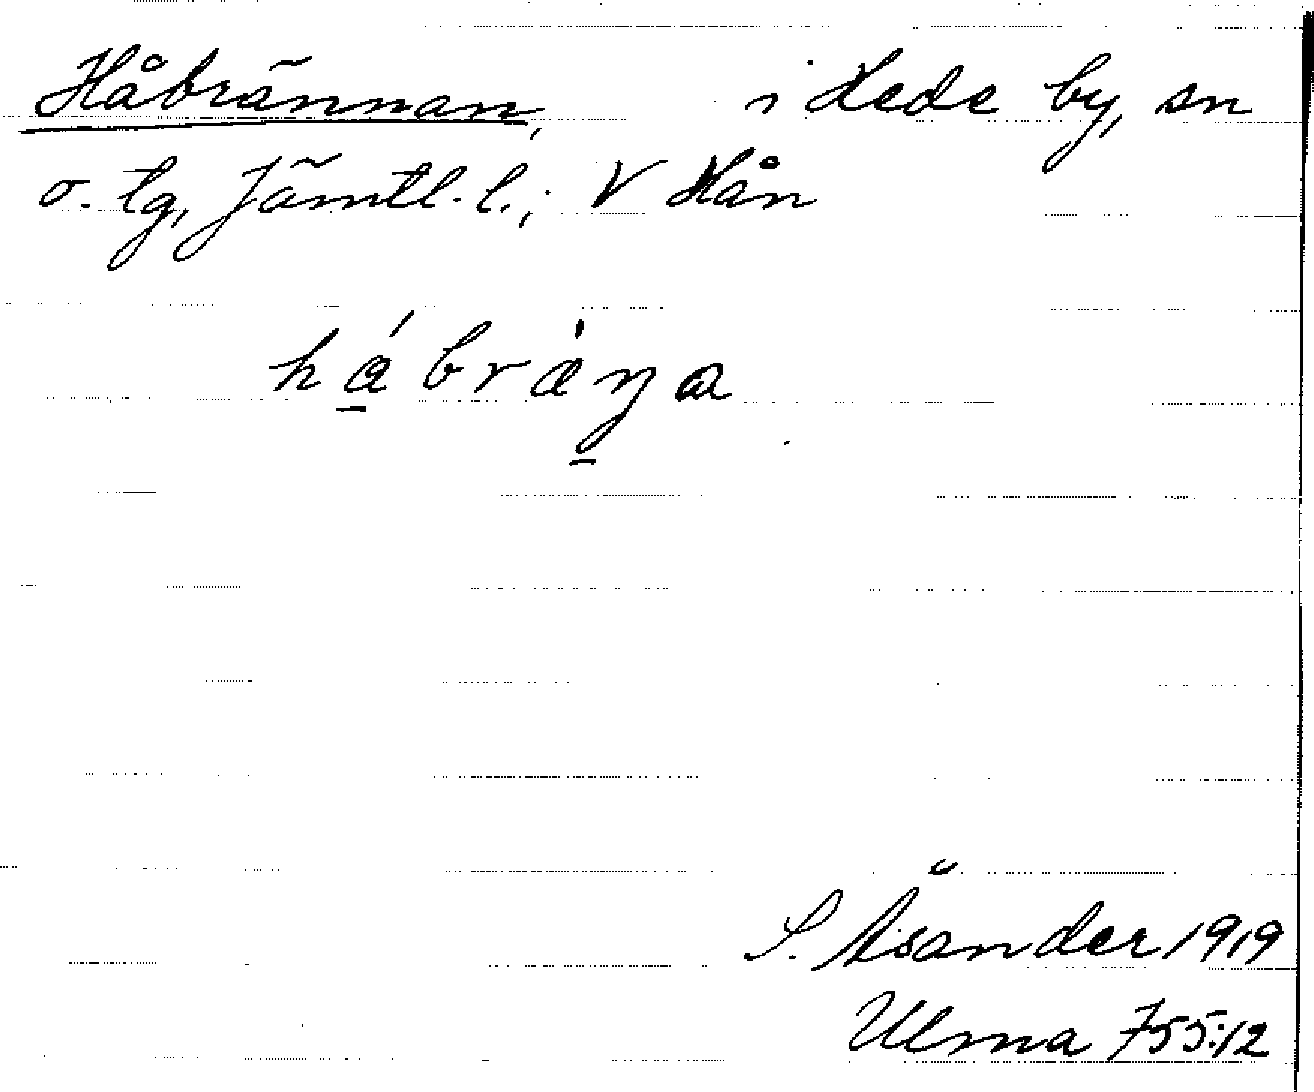 Håbrännan, i Hede by, sn
o. tg, Jämtl. l.; V Hån
hábráŋa
S. Åsander 1919
Ulma 755:12